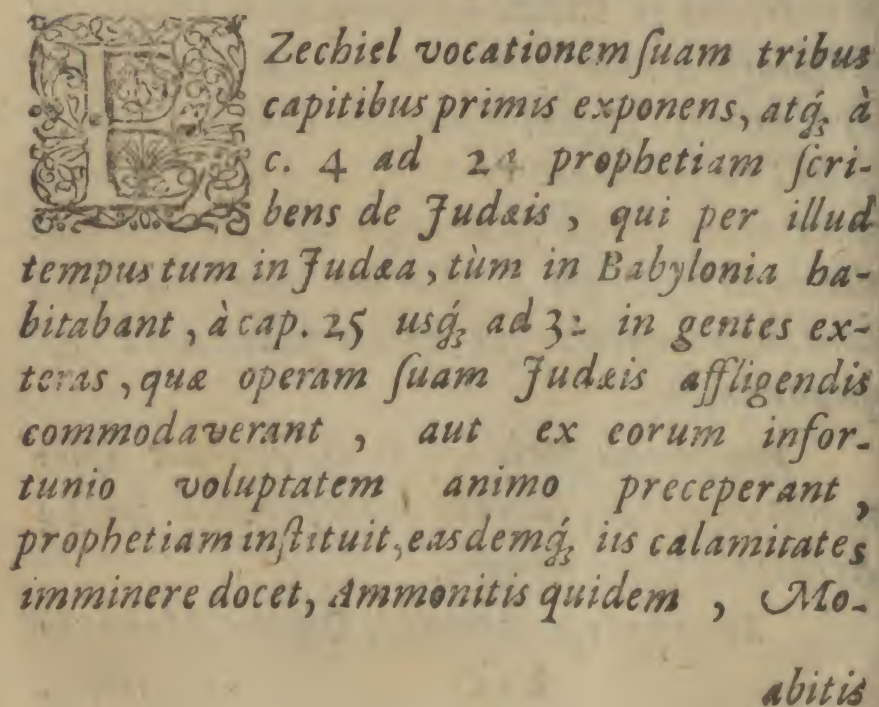 EZechiel vocationem ſuam tribus
capitibus primis exponens, atq́ꝫ à
c. 4 ad 24 prophetiam ſcri-
bens de Judæis, qui per illud
tempus tum in Judæa, tùm in Babylonia ha-
bitabant, à cap. 25 usq́ꝫ ad 32 in gentes ex-
teras, quæ operam ſuam Judæis affligendis
commodaverant, aut ex eorum infor-
tunio voluptatem animo preceperant,
prophetiam inſtituit, easdemq́ꝫ iis calamitates
imminere docet, Ammonitis quidem, Mo-
abitis